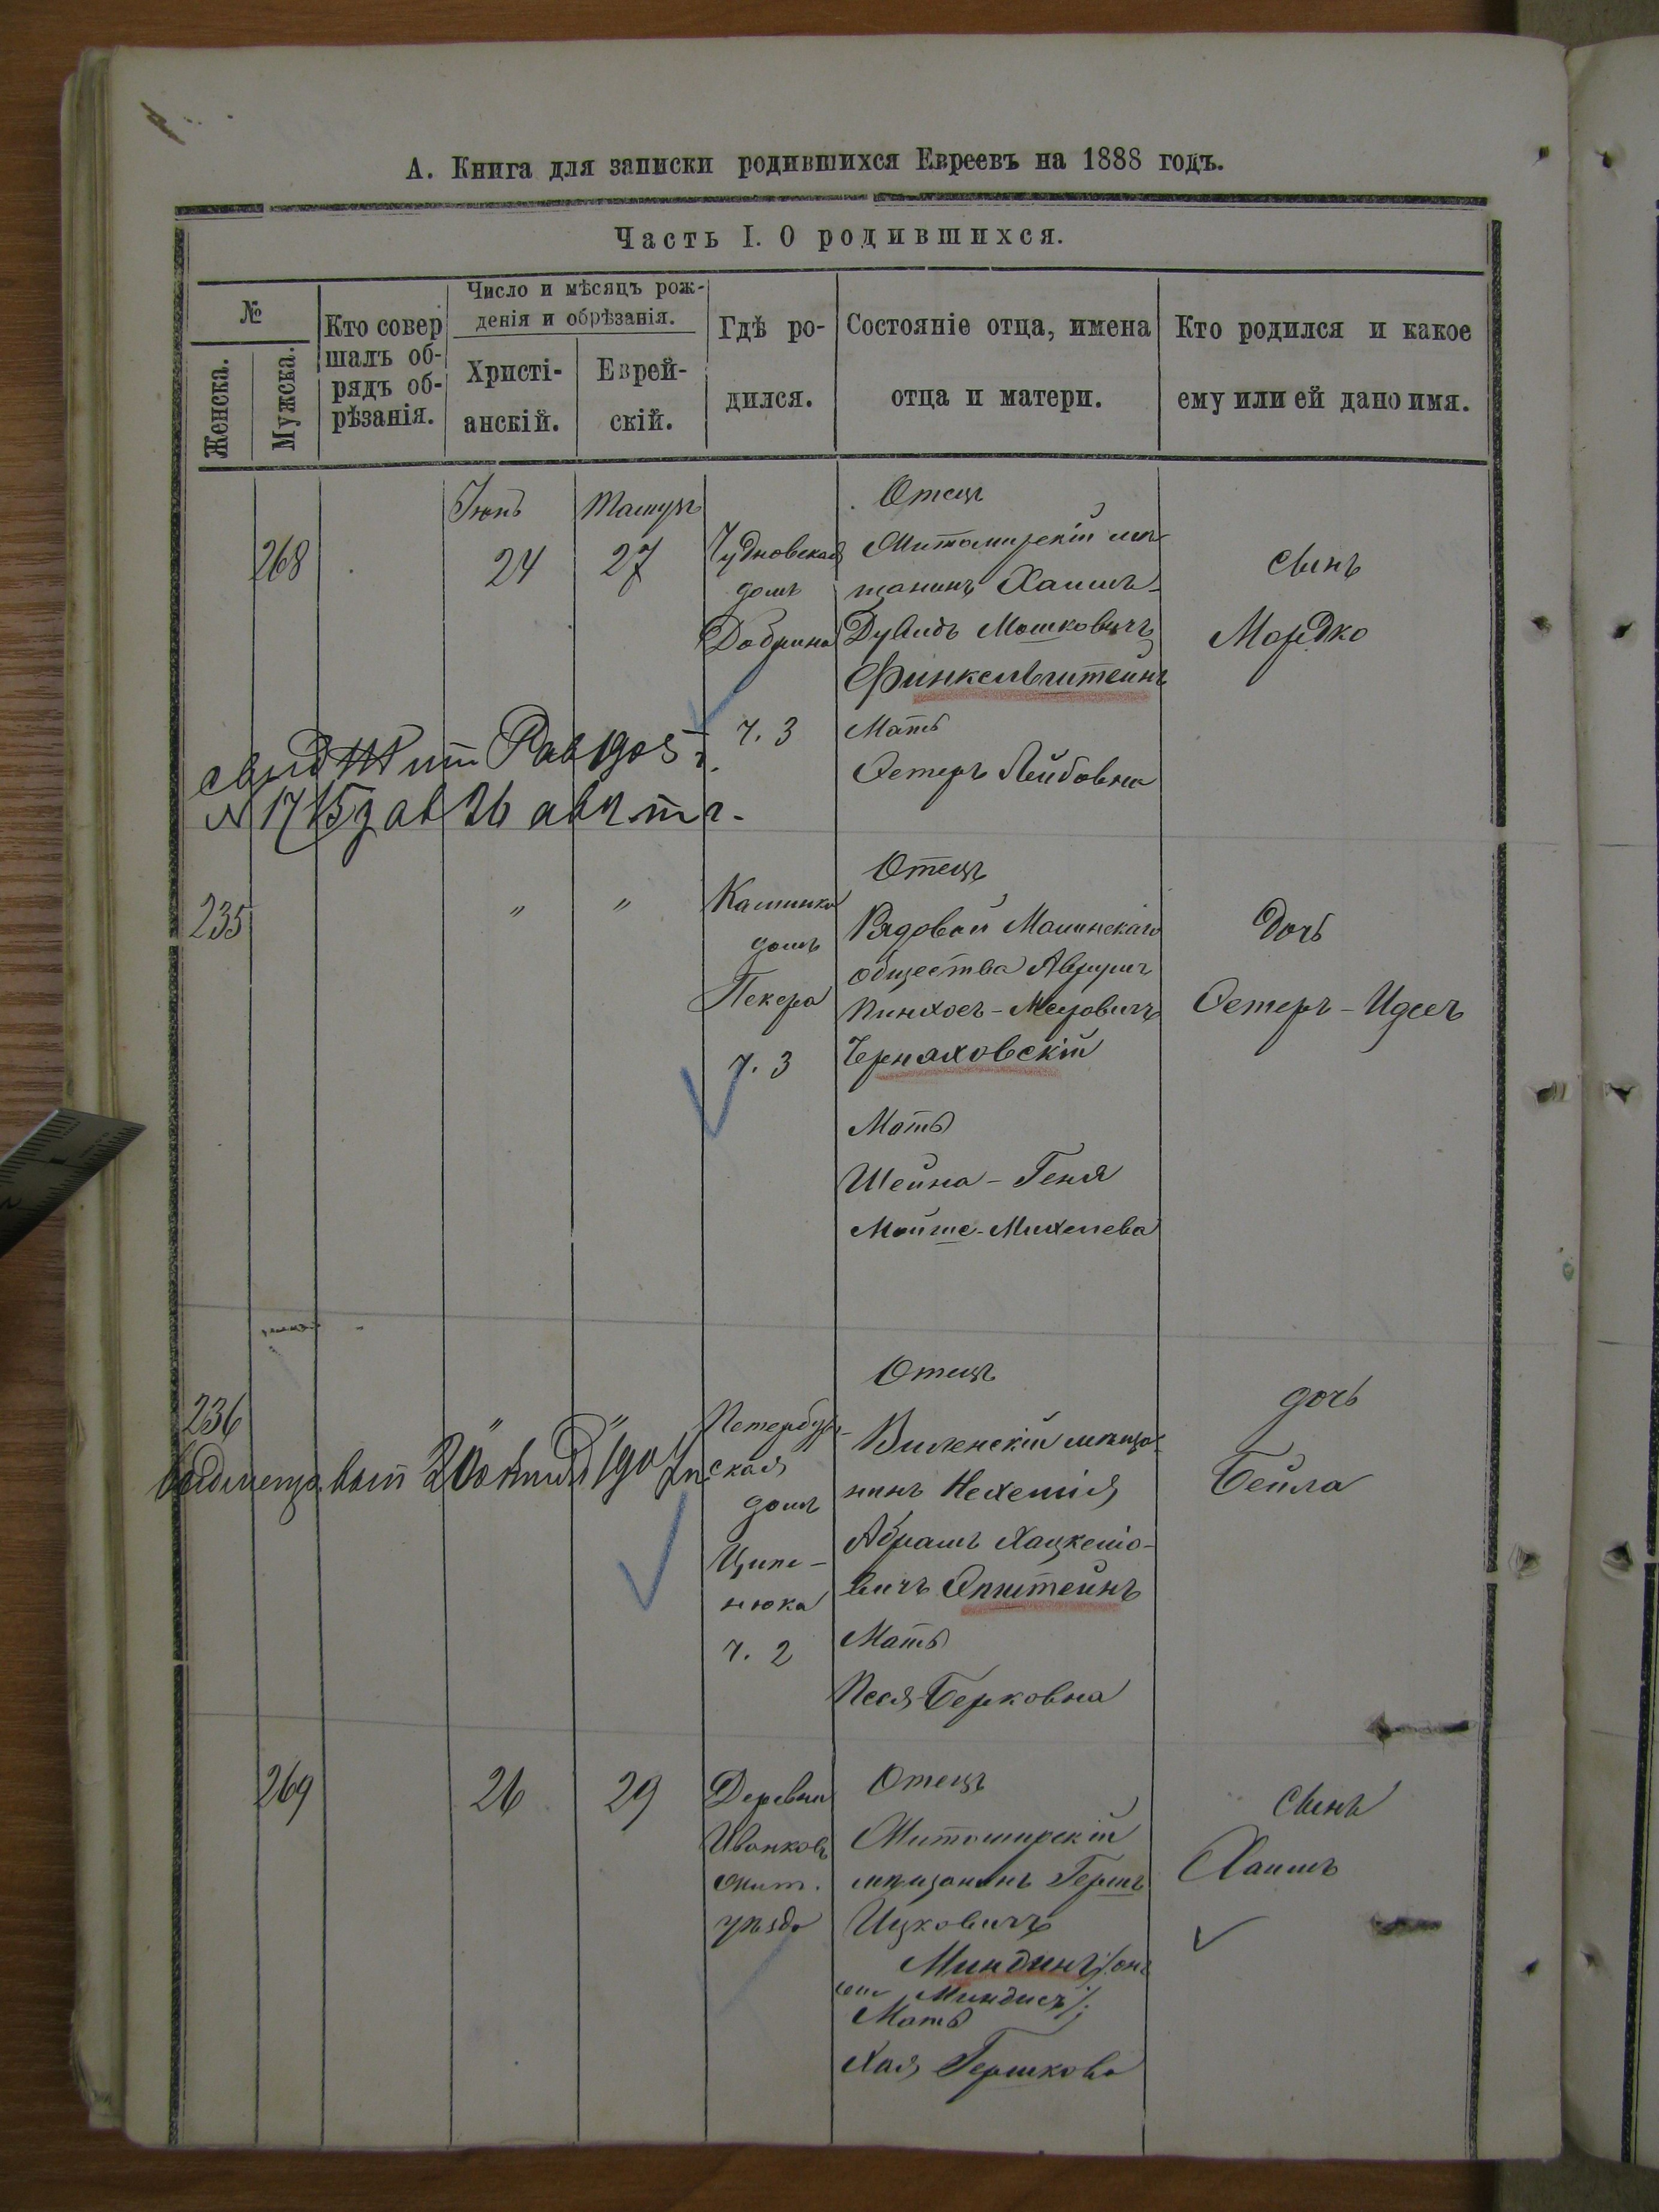 А. Книга для записки родившихся Евреевъ на 1888 годъ.
Часть I. О родившихся.
№
Женска.
Мужска.
Кто совер
шалъ об-
рядъ об-
рѣзанія.
Число и мѣсяцъ рож-
денія и обрѣзанія.
Христі-
анскій.
Еврей-
скій.
Гдѣ ро-
дился.
Состояніе отца, имена
отца и матери.
Кто родился и какое
ему или ей дано имя.
268
Іюнь
24
27
Чудновская
домъ
Добрина
ч. 3
Отецъ
Житомирскій мѣ-
щанинъ Хаимъ-
Дувидъ Мошковичъ
Финкельштейнъ
Мать
Эстеръ Лейбовна
сынъ
Мордко
235
"
"
домъ
Пекера
ч. 3
Отецъ
Рядовой
общества Аврумъ
Пинхосъ-Меровичъ
Черняховскій
Мать
Шейна-Геня
Мойше-Михелева
дочь
Эстеръ-Идесъ
236
"
"
Петербург-
ская
домъ
Ципе-
нюка
ч. 2
Отецъ
Виленскій мѣща-
нинъ Нехемія
Абрамъ Хацкеліо-
вичъ Эпштейнъ
Мать
Песя-Берковна
дочь
Бейла
269
26
29
Деревни
Иванковъ
Жит.
уѣзда
Отецъ
Житомирскій
мѣщанинъ Гершъ
Ицковичъ
Миндинъ/онъ
же Миндисъ/;
Мать
Хая Гершкова
сынъ
Хаимъ